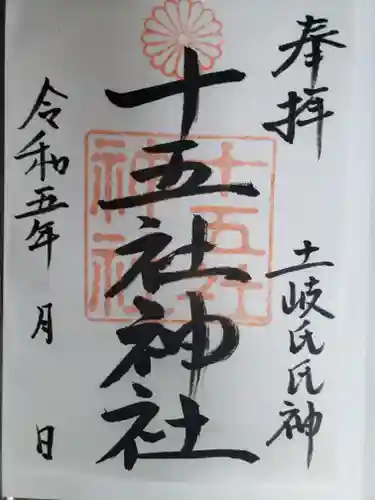 奉拝
土岐氏氏神
十五社神社
十五社
神社
令和五年 月 日